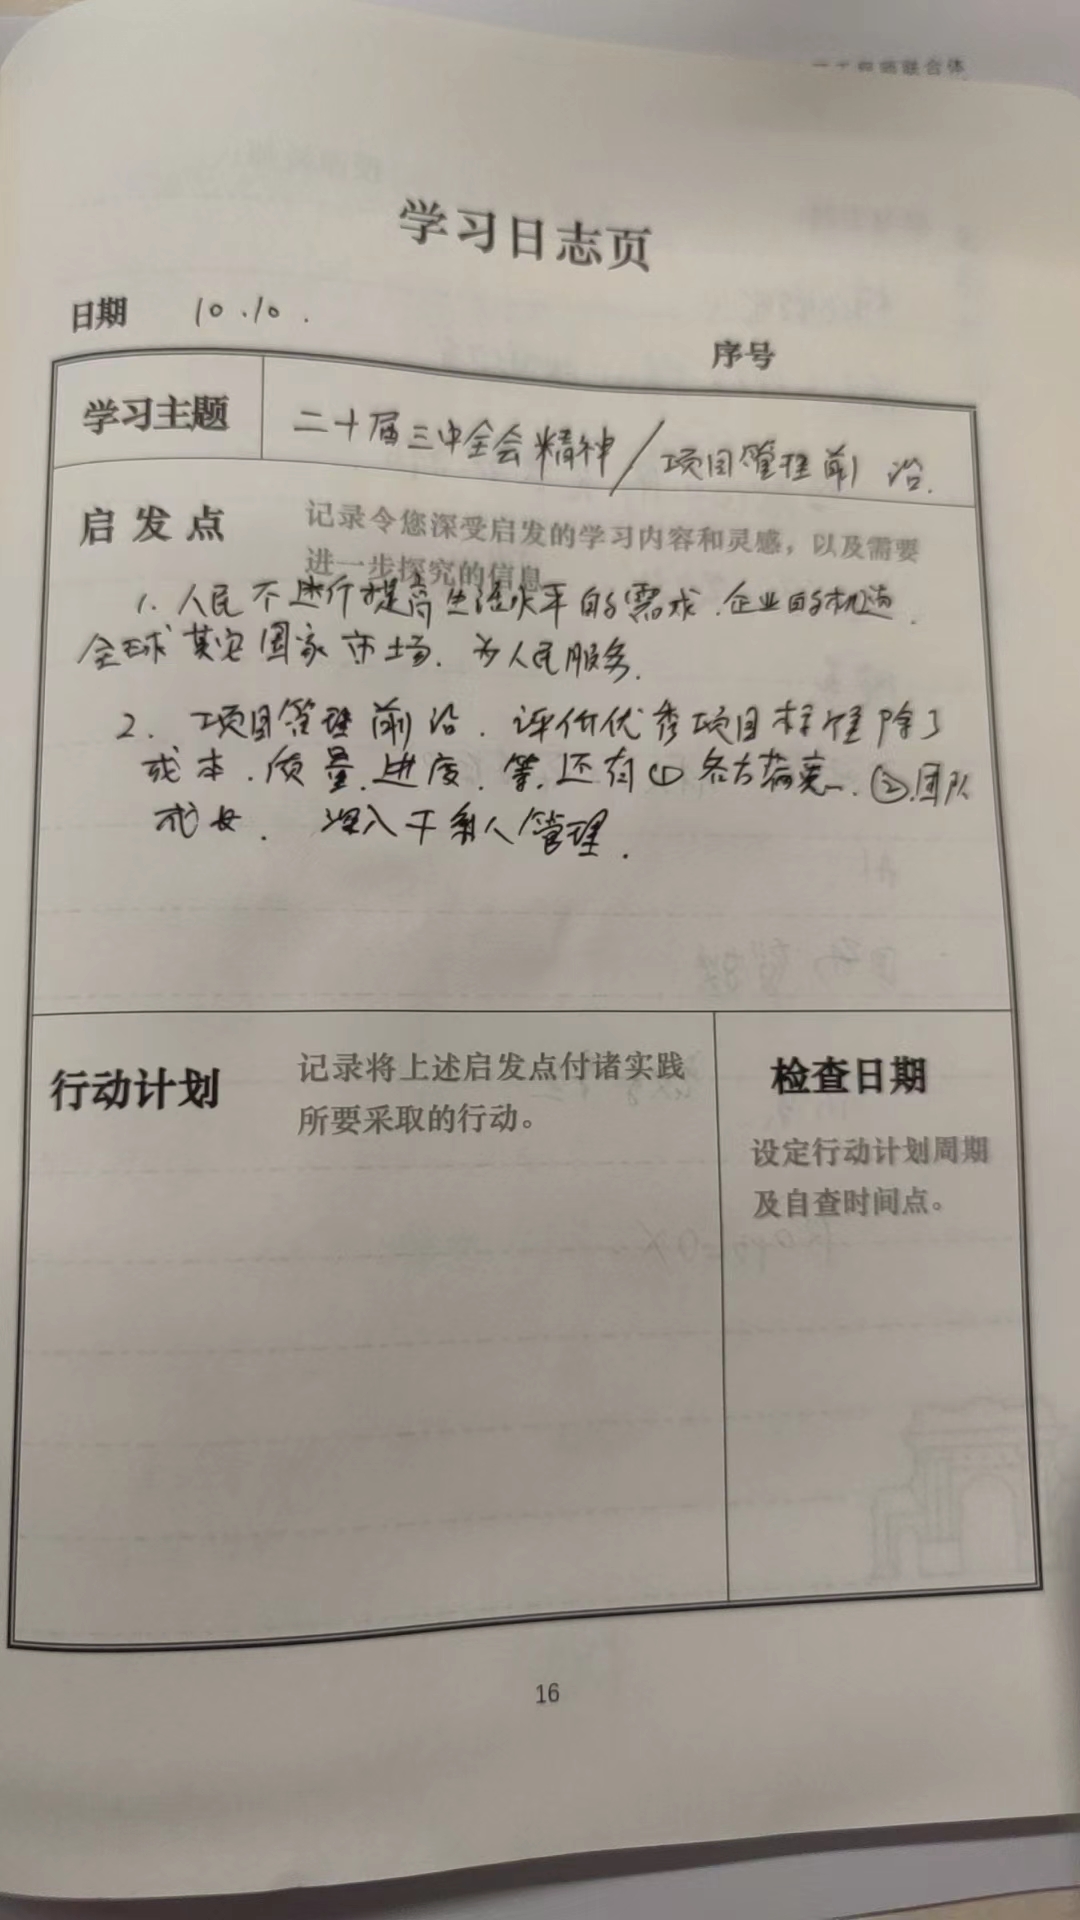 联合体
学习日志页
日期 10.10.
序号
学习主题 二十届三中全会精神/项目管理前沿.
启发点 记录令您深受启发的学习内容和灵感，以及需要
进一步探究的信息
1. 人民不断提高生活水平的需求.企业的机遇.
全球其它国家市场. 为人民服务.
2. 项目管理前沿. 评价优秀项目标准除了
成本.质量.进度.等.还有①各方满意.②团队
成长. 深入干系人管理.
行动计划 记录将上述启发点付诸实践
所要采取的行动。
检查日期
设定行动计划周期
及自查时间点。
16